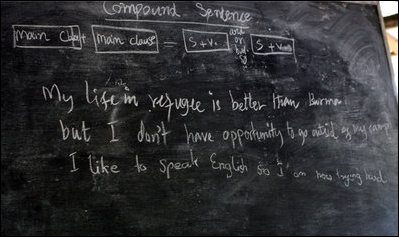 Compound Sentence
Main Clause + Main clause = S + V. and but so S + V
My life in refugee is better than Burma
but I don't have opportunity to go outsid of my camp
I like to speak English so I'm now trying hard